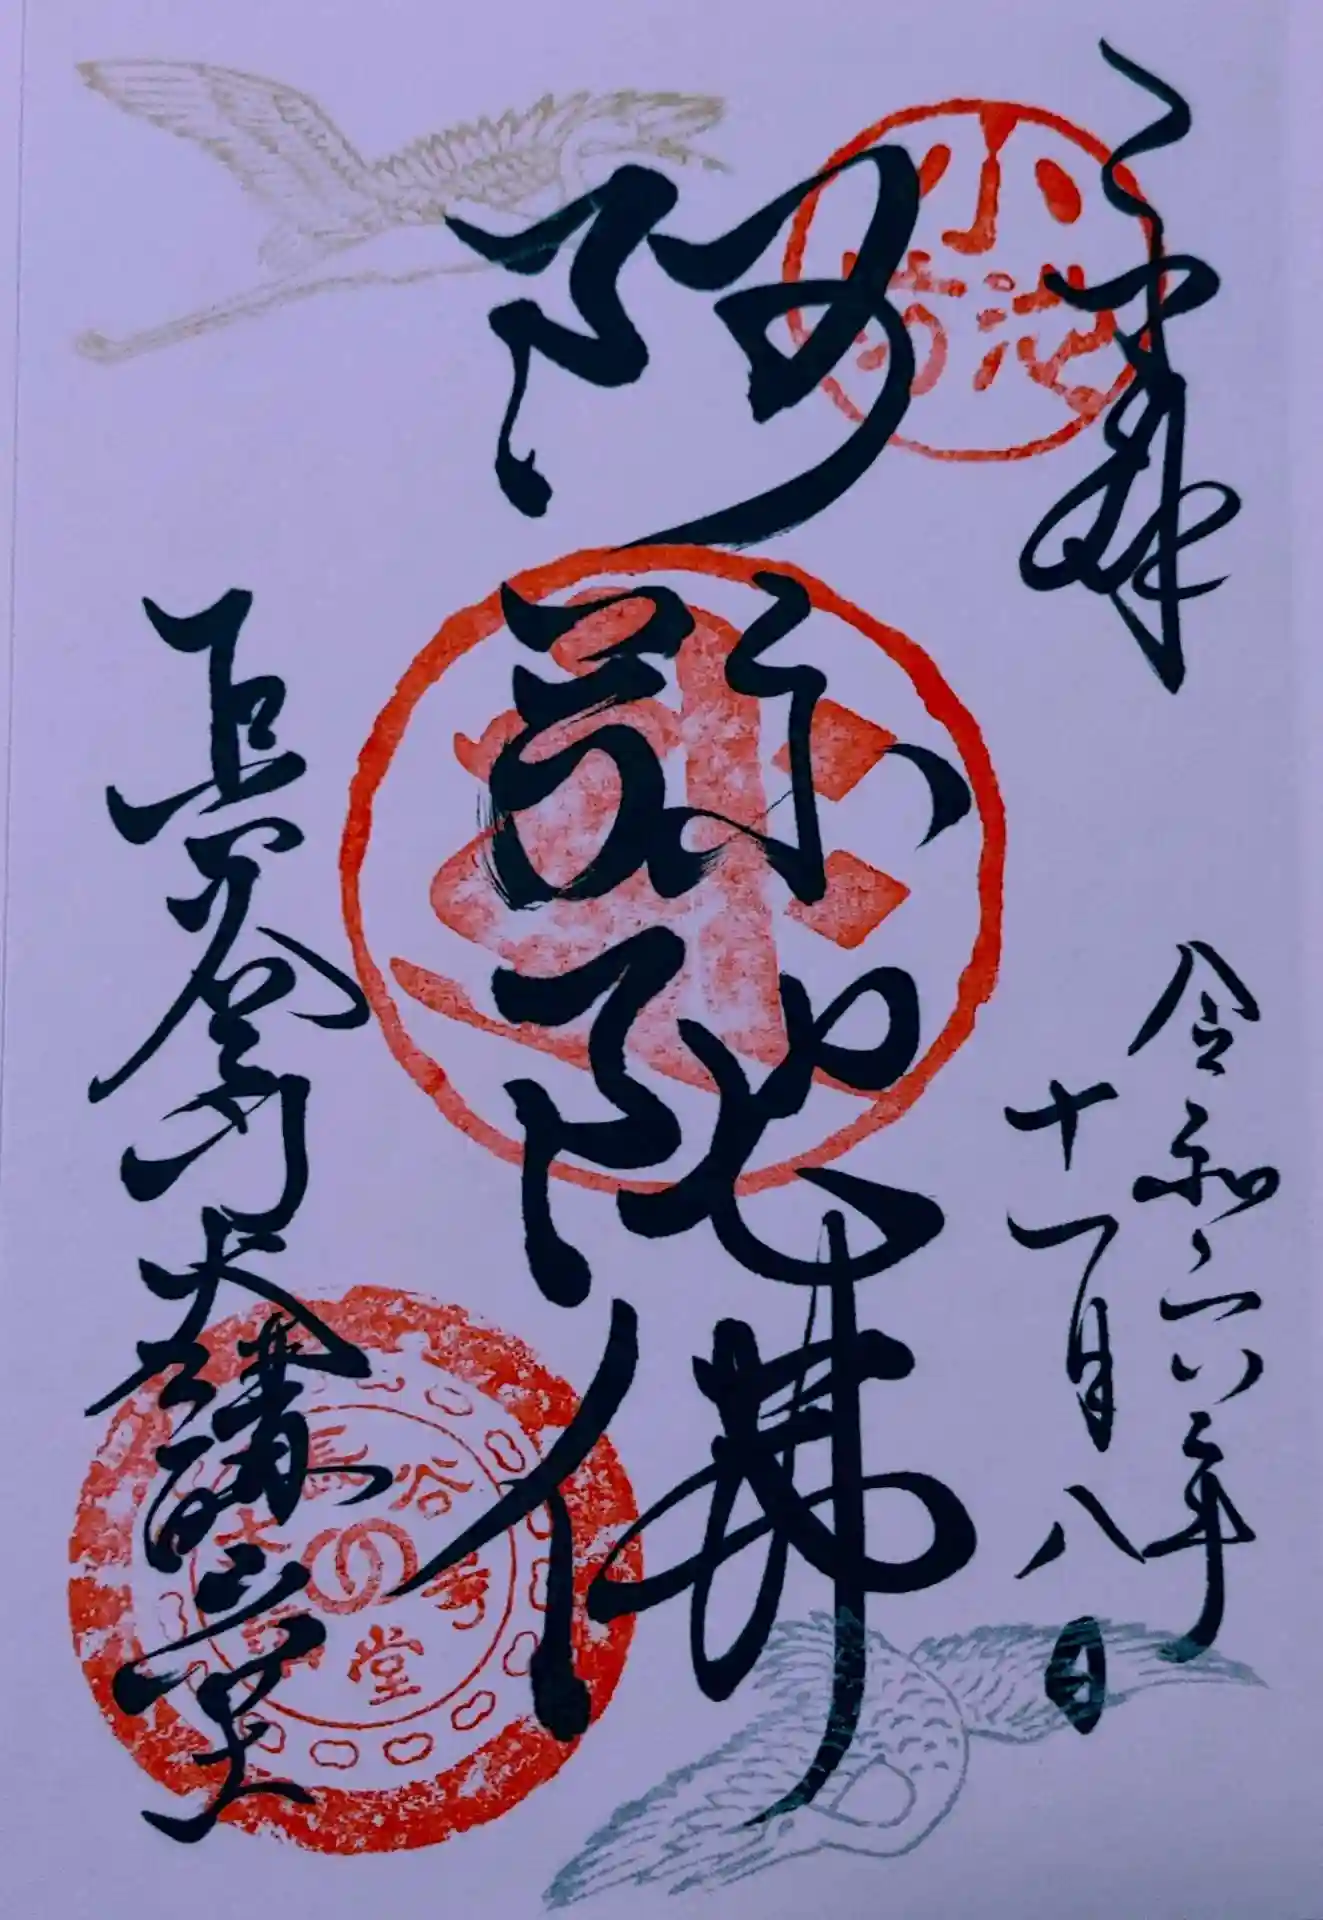 奉拝
令和六年
十一月八日
阿弥陀佛
長谷寺大講堂
小池
坊
長谷寺
大講堂